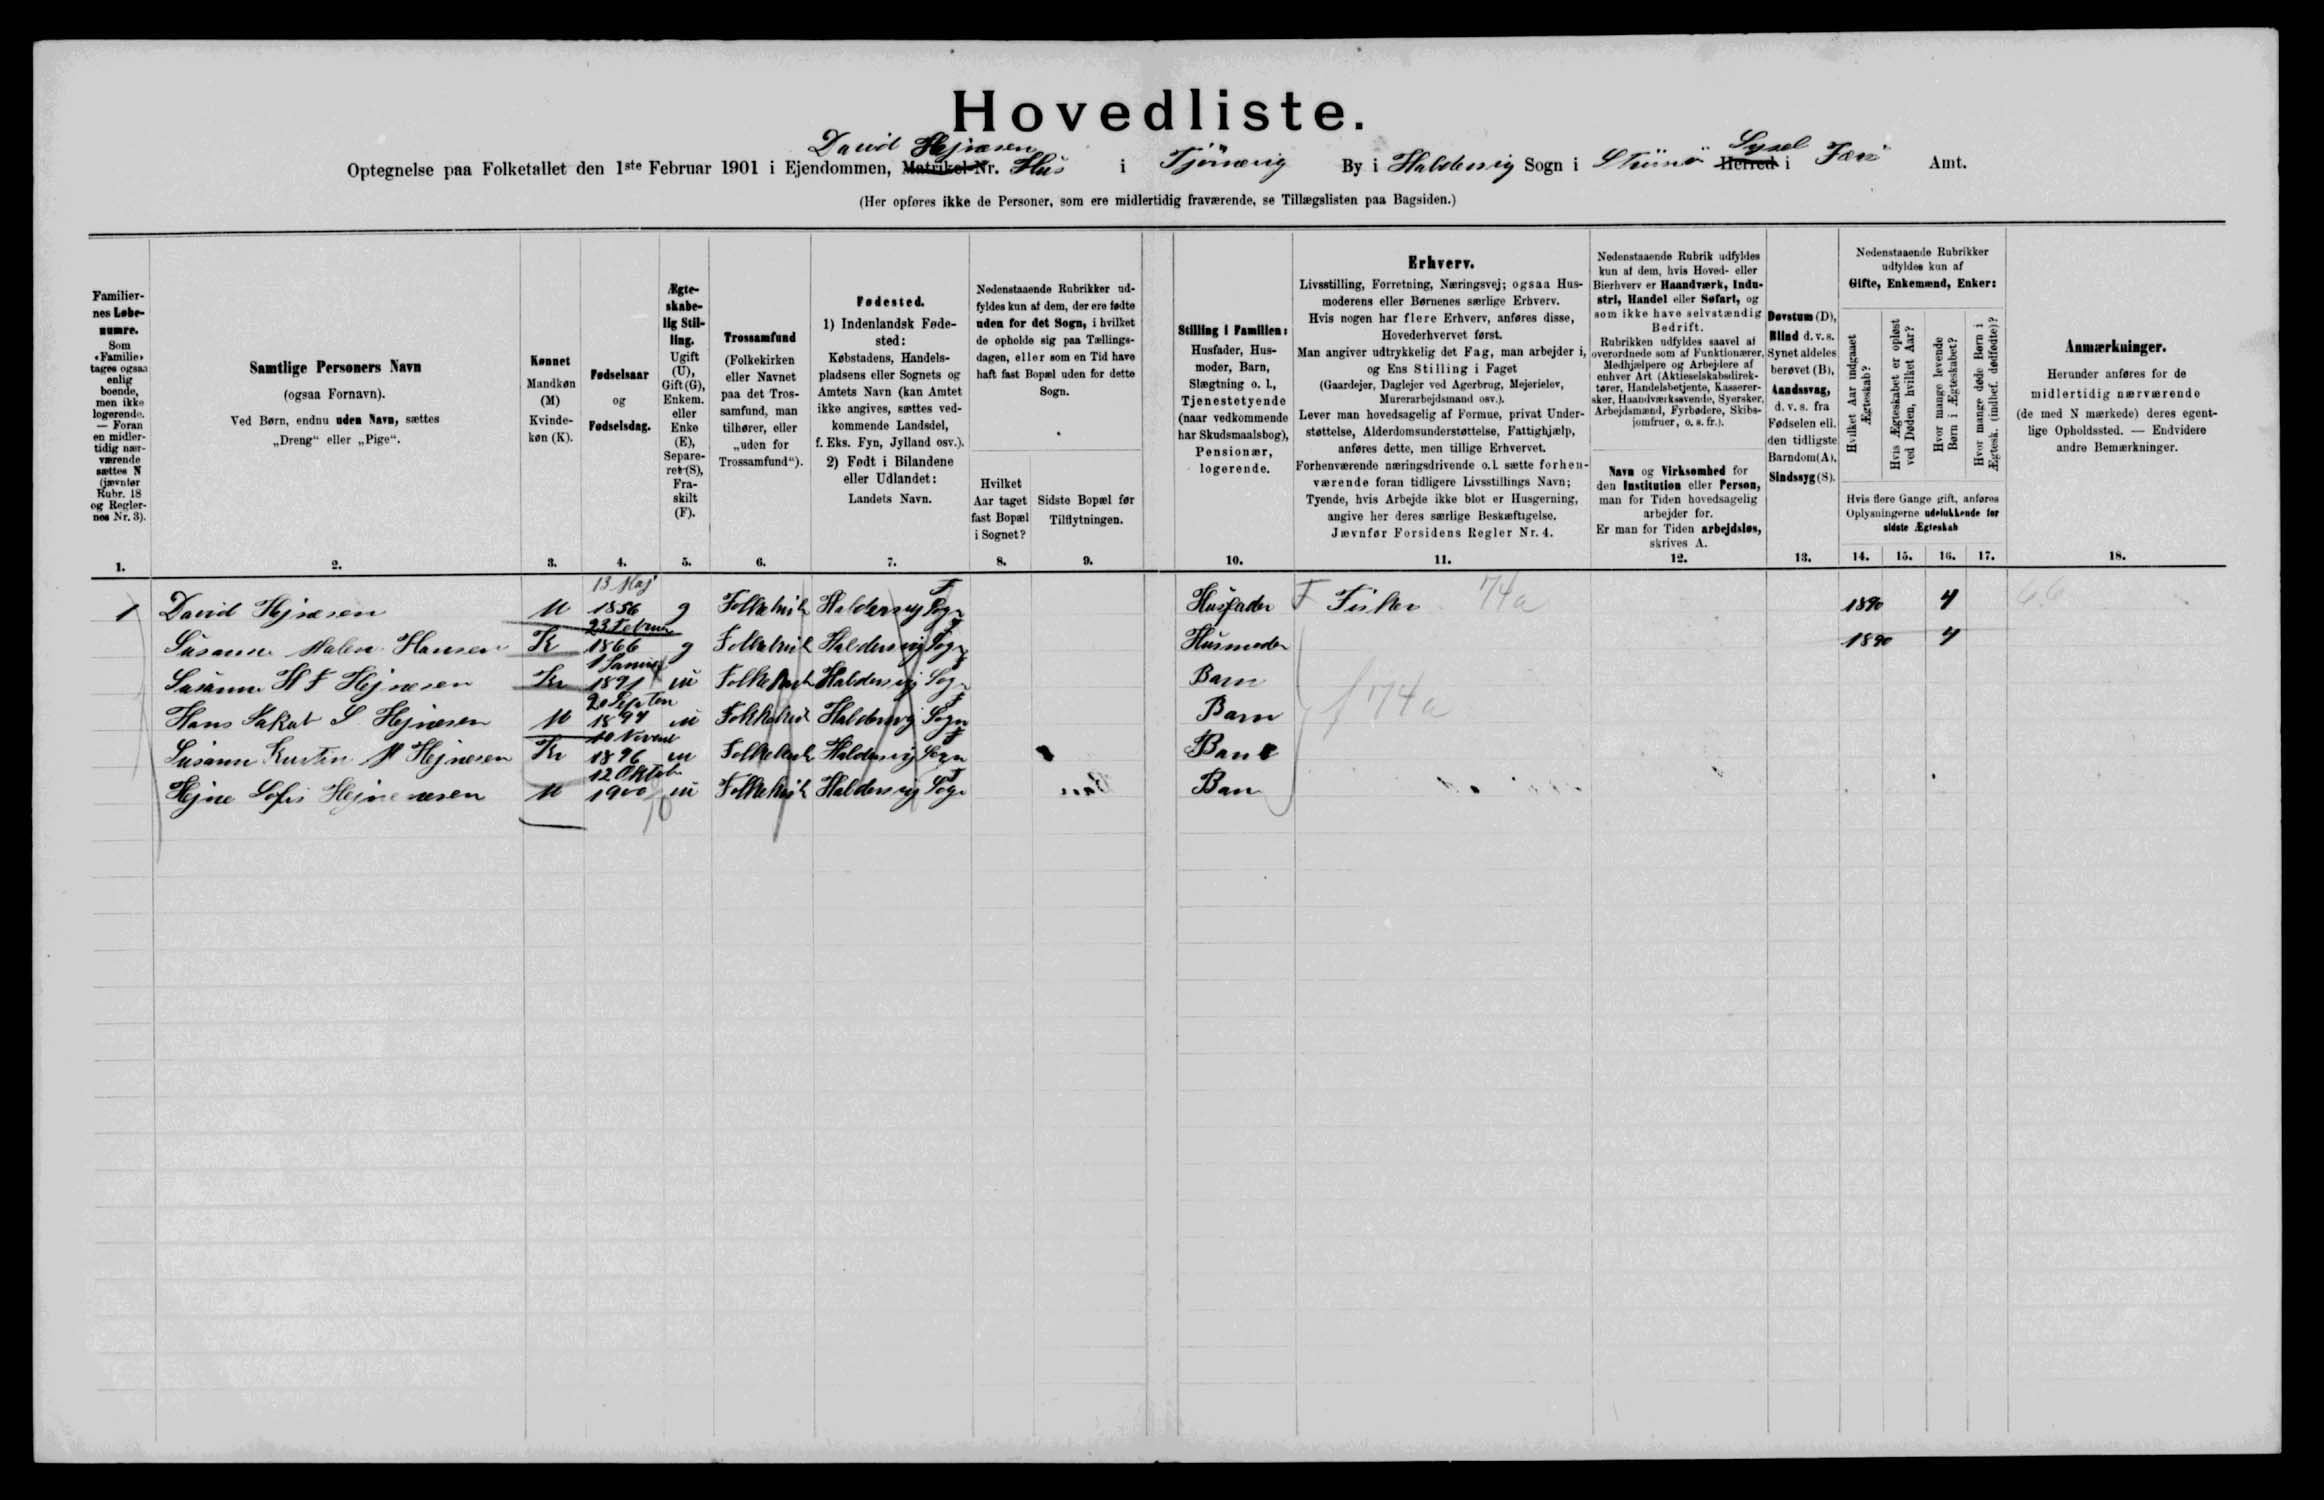 Hovedliste.
David Hejnesen Sysel
Optegnelse paa Folketallet den 1ste Februar 1901 i Ejendommen, Matrikel-Nr. Hus i Tjörnevig By i Haldersvig Sogn i Strömö Herred i Færö Amt.
(Her opføres ikke de Personer, som ere midlertidig fraværende, se Tillægslisten paa Bagsiden.)
Familier-
nes Løbe-
numre.
Som
«Familie»
tages ogsaa
enlig
boende,
men ikke
logerende.
— Foran
en midler-
tidig nær-
værende
sættes N
(jævnfør
Rubr. 18
og Regler-
nes Nr. 3).
1.
Samtlige Personers Navn
(ogsaa Fornavn).
Ved Børn, endnu uden Navn, sættes
„Dreng“ eller „Pige“.
2.
Kønnet
Mandkøn
(M)
Kvinde-
køn (K).
3.
Fødselsaar
og
Fødselsdag.
4.
Ægte-
skabe-
lig Stil-
ling.
Ugift
(U),
Gift (G),
Enkem.
eller
Enke
(E),
Separe-
ret (S),
Fra-
skilt
(F).
5.
Trossamfund
(Folkekirken
eller Navnet
paa det Tros-
samfund, man
tilhører, eller
„uden for
Trossamfund“).
6.
Fødested.
1) Indenlandsk Føde-
sted:
Købstadens, Handels-
pladsens eller Sognets og
Amtets Navn (kan Amtet
ikke angives, sættes ved-
kommende Landsdel,
f. Eks. Fyn, Jylland osv.).
2) Født i Bilandene
eller Udlandet:
Landets Navn.
7.
Nedenstaaende Rubrikker ud-
fyldes kun af dem, der ere fødte
uden for det Sogn, i hvilket
de opholde sig paa Tællings-
dagen, eller som en Tid have
haft fast Bopæl uden for dette
Sogn.
Hvilket
Aar taget
fast Bopæl
i Sognet?
8.
Sidste Bopæl før
Tilflytningen.
9.
Stilling i Familien:
Husfader, Hus-
moder, Barn,
Slægtning o. l.,
Tjenestetyende
(naar vedkommende
har Skudsmaalsbog),
Pensionær,
logerende.
10.
Erhverv.
Livsstilling, Forretning, Næringsvej; ogsaa Hus-
moderens eller Børnenes særlige Erhverv.
Hvis nogen har flere Erhverv, anføres disse,
Hovederhvervet først.
Man angiver udtrykkelig det Fag, man arbejder i,
og Ens Stilling i Faget
(Gaardejer, Daglejer ved Agerbrug, Mejerielev,
Murerarbejdsmand osv.).
Lever man hovedsagelig af Formue, privat Under-
støttelse, Alderdomsunderstøttelse, Fattighjælp,
anføres dette, men tillige Erhvervet.
Forhenværende næringsdrivende o. l. sætte forhen-
værende foran tidligere Livsstillings Navn;
Tyende, hvis Arbejde ikke blot er Husgerning,
angive her deres særlige Beskæftigelse.
Jævnfør Forsidens Regler Nr. 4.
11.
Nedenstaaende Rubrik udfyldes
kun af dem, hvis Hoved- eller
Bierhverv er Haandværk, Indu-
stri, Handel eller Søfart, og
som ikke have selvstændig
Bedrift.
Rubrikken udfyldes saavel af
overordnede som af Funktionærer,
Medhjælpere og Arbejdere af
enhver Art (Aktieselskabsdirek-
tører, Handelsbetjente, Kasserer-
sker, Haandværkssvende, Syersker,
Arbejdsmænd, Fyrbødere, Skibs-
jomfruer, o. s. fr.).
Navn og Virksomhed for
den Institution eller Person,
man for Tiden hovedsagelig
arbejder for.
Er man for Tiden arbejdsløs,
skrives A.
12.
Døvstum (D),
Blind d. v. s.
Synet aldeles
berøvet (B),
Aandssvag,
d. v. s. fra
Fødselen ell.
den tidligste
Barndom (A),
Sindssyg (S).
13.
Nedenstaaende Rubrikker
udfyldes kun af
Gifte, Enkemænd, Enker:
Hvilket Aar indgaaet
Ægteskab?
Hvis Ægteskabet er opløst
ved Døden, hvilket Aar?
Hvor mange levende
Børn i Ægteskabet?
Hvor mange døde Børn i
Ægtesk. (indbef. dødfødte)?
Hvis flere Gange gift, anføres
Oplysningerne udelukkende for
sidste Ægteskab
14. 15. 16. 17.
Anmærkninger.
Herunder anføres for de
midlertidig nærværende
(de med N mærkede) deres egent-
lige Opholdssted. — Endvidere
andre Bemærkninger.
18.
13 Maj
1 David Hejnesen M 1856 g Folkekirk Haldersvig Sogn F Husfader F Fisker 74a 1890 4 6.6
23 Februar
Susanne Malene Hansen K 1866 g Folkekirk Haldersvig Sogn Husmoder 1890 4
1 Januar
Susanne H F Hejnesen Kv 1891 u Folkekirk Haldersvig Sogn Barn
20 Septem
Hans Jakob S Hejnesen M 1894 u Folkekirk Haldersvig Sogn Barn f 74a
10 Novemb
Susanne Kirstin M Hejnesen Kv 1896 u Folkekirk Haldersvig Sogn Barn
12 Oktob
Hejne Sofus Hejnesen M 1900 u Folkekirk Haldersvig Sogn Barn